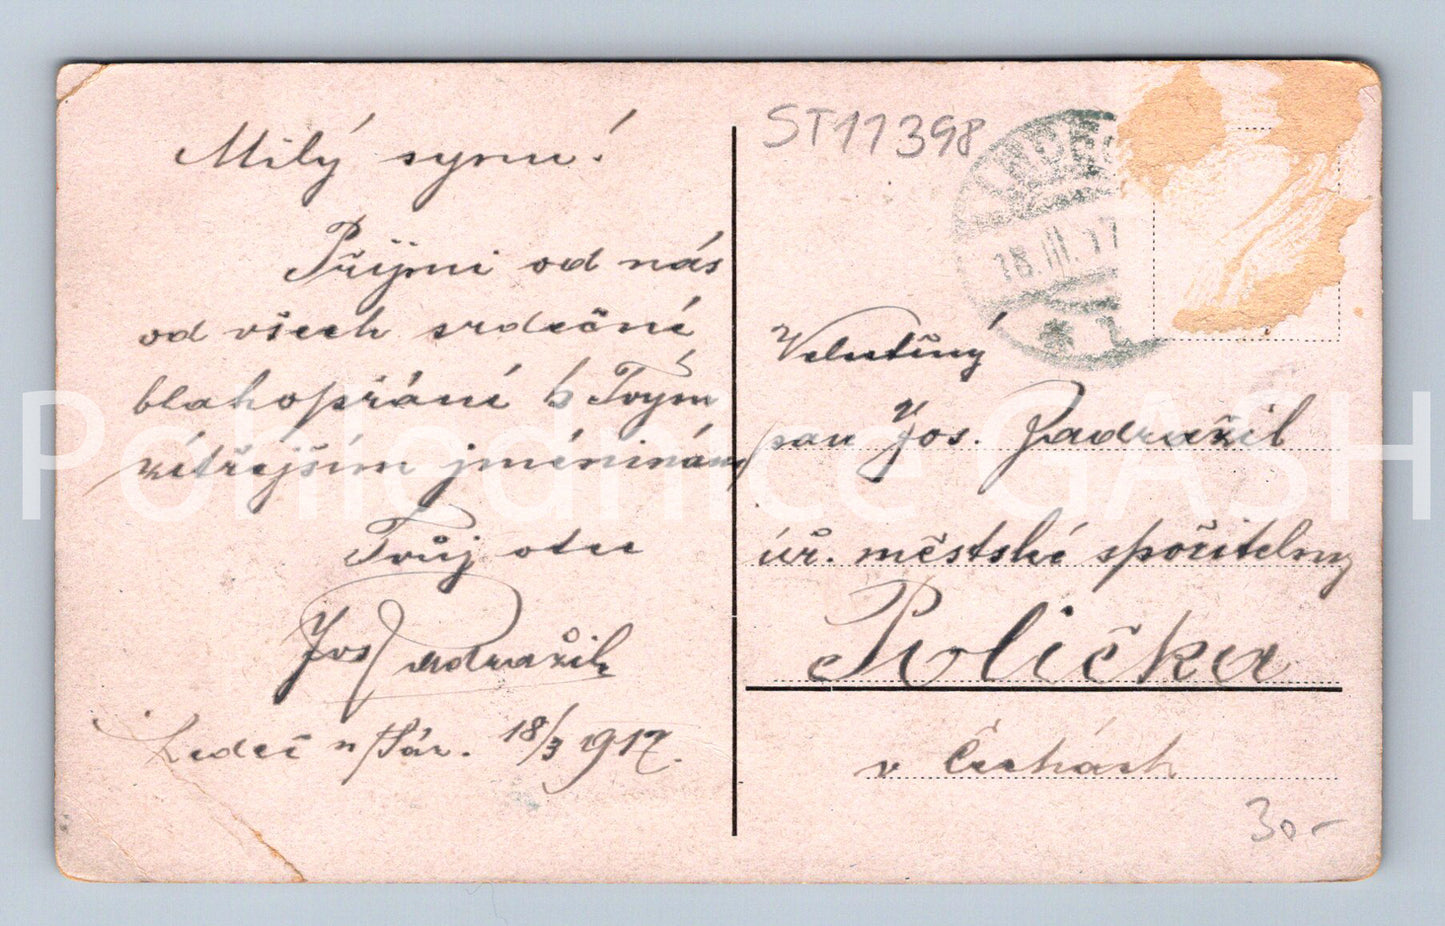 Milý synu!
Přijmi od nás
od všech srdečné
blahopřání k Tvým
zítřejším jmeninám
Tvůj otec
Jos Zadražil
Ledeč n/Sáz. 18/3 1917.
ST11398
LEDEČ
18.III.17
* 1
Velectěný
pan Jos. Zadražil
úř. městské spořitelny
Polička
v Čechách
30.-
Pohlednice GASH